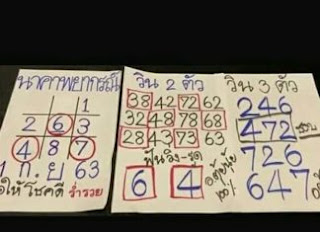 นาคาพยากรณ์
1
2 6 3
4 8 7
1 ก.ย 63
ให้โชคดี ร่ำรวย
วิน 2 ตัว
38 42 72 62
32 48 78 68
28 43 73 63
ฟันวิ่ง-รูด
6 4
100%
วิน 3 ตัว
246
472 ชอบ
726
647